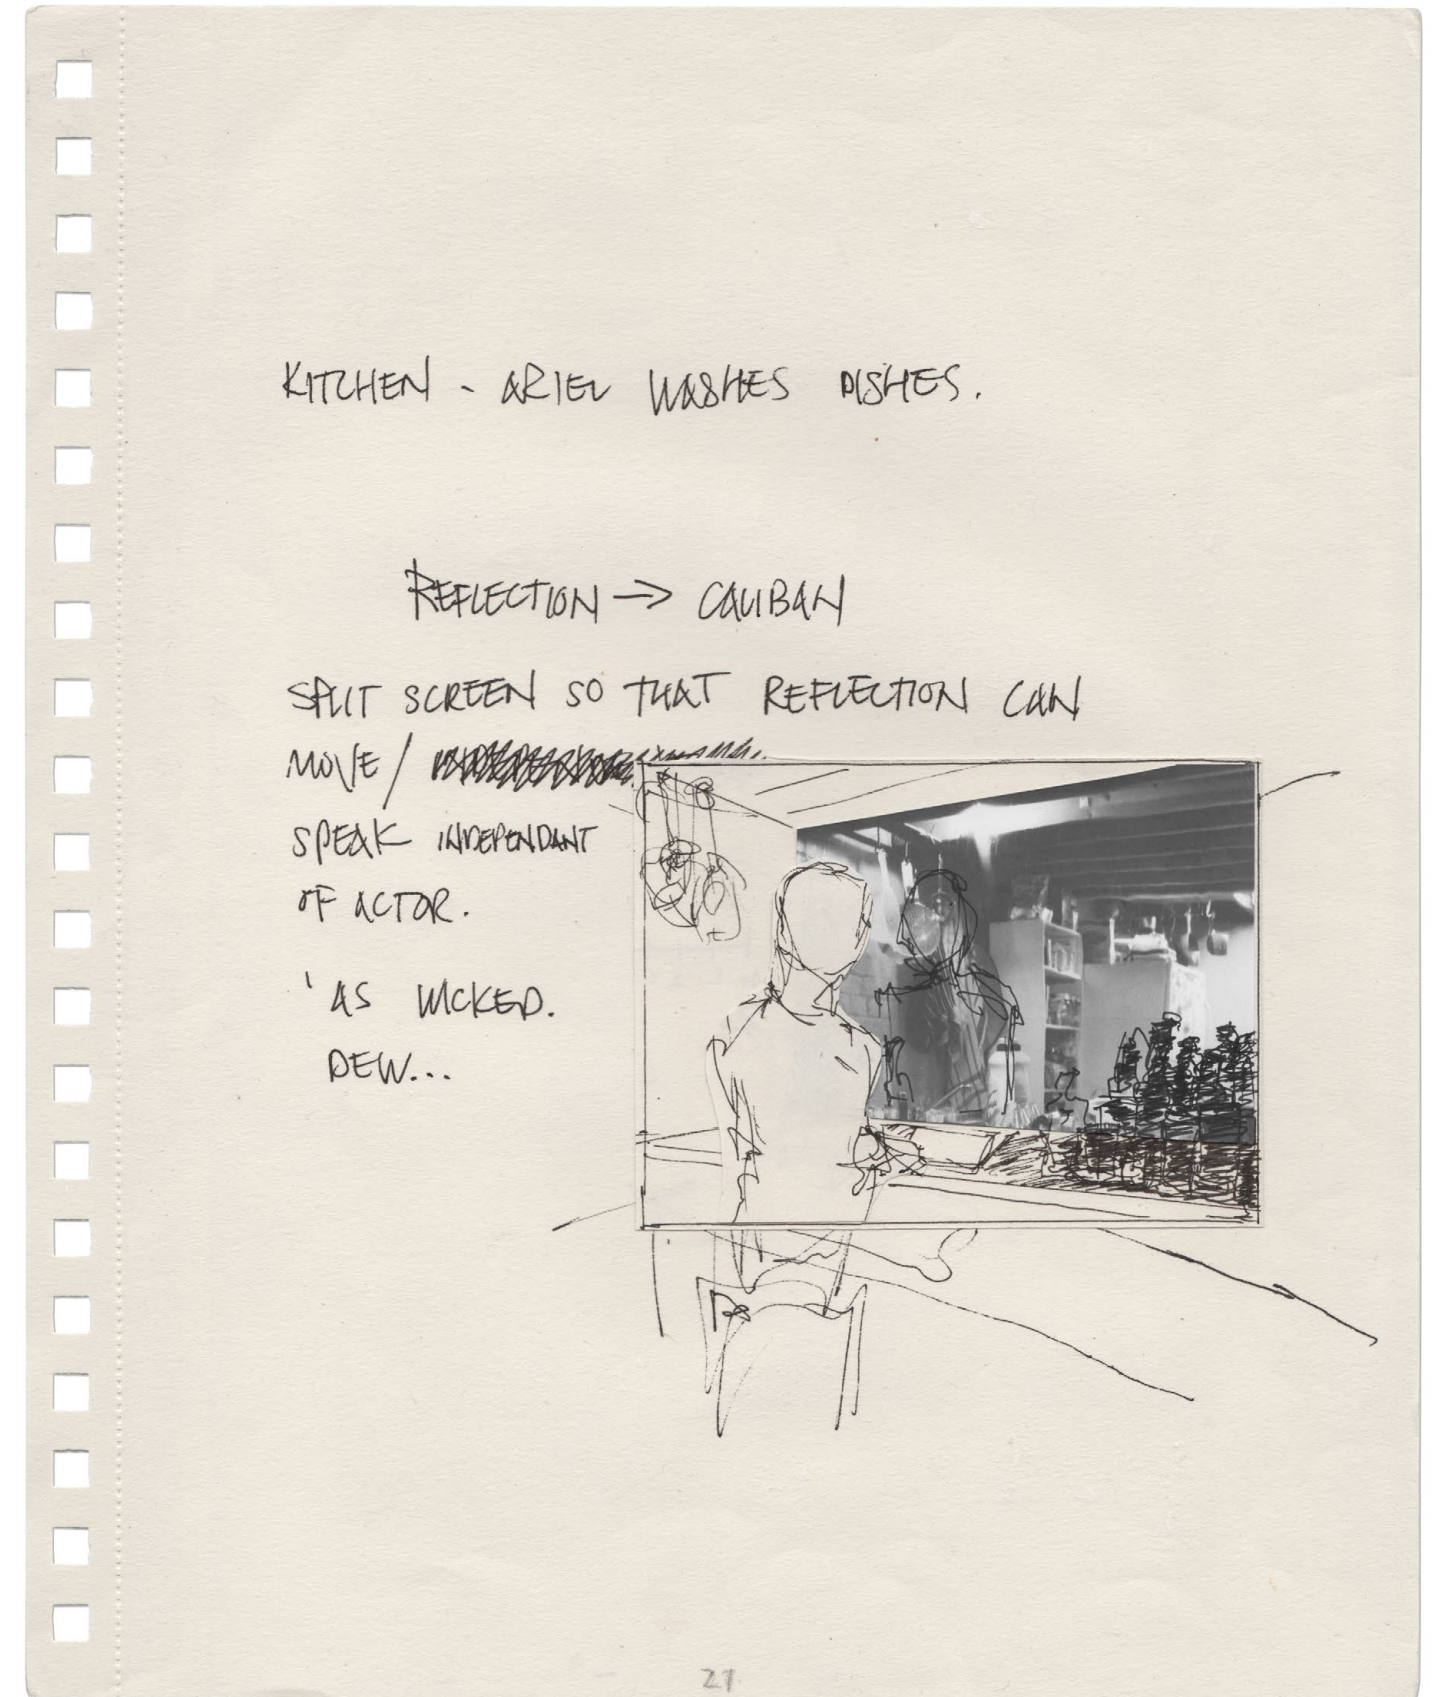 KITCHEN - ARIEL WASHES DISHES.
REFLECTION → CALIBAN
SPLIT SCREEN SO THAT REFLECTION CAN
MOVE /
SPEAK INDEPENDANT
OF ACTOR.
'AS WICKED.
DEW...
27